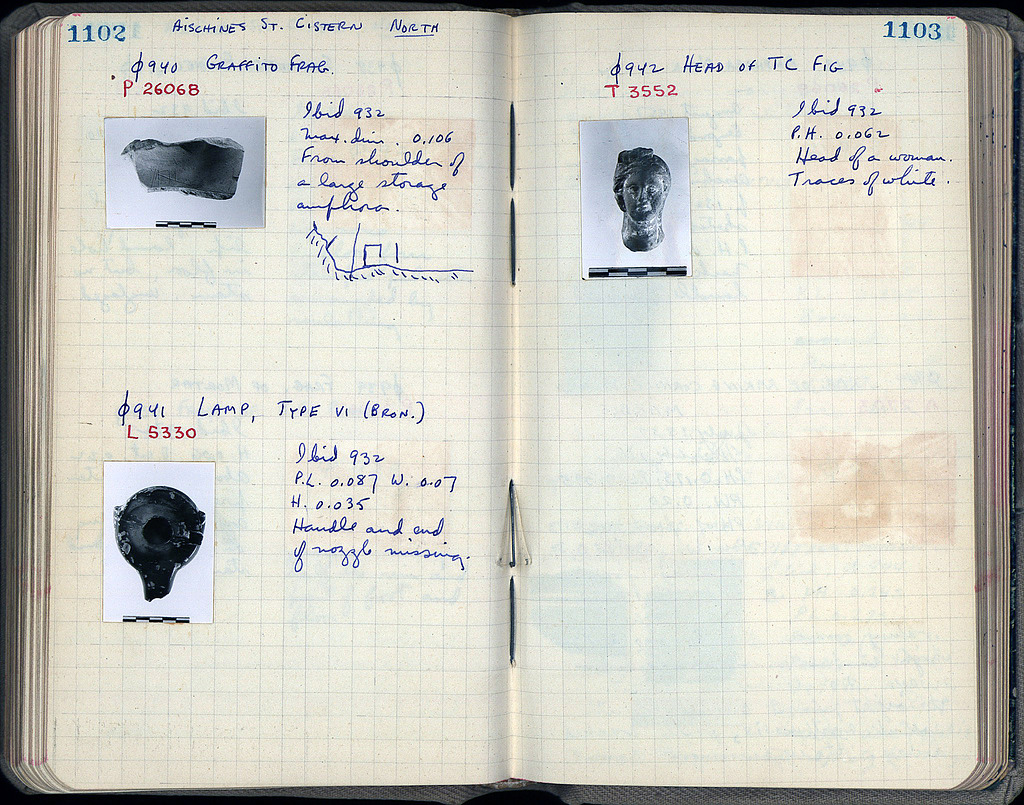 1102 AISCHINES ST. CISTERN NORTH
φ940 GRAFFITO FRAG.
P 26068
Ibid 932
Max. dim. 0.106
From shoulder of
a large storage
amphora.
φ941 LAMP, TYPE VI (BRON.)
L 5330
Ibid 932
P.L. 0.087 W. 0.07
H. 0.035
Handle and end
of nozzle missing.
1103
φ942 HEAD OF TC FIG
T 3552
Ibid 932
P.H. 0.062
Head of a woman.
Traces of white.